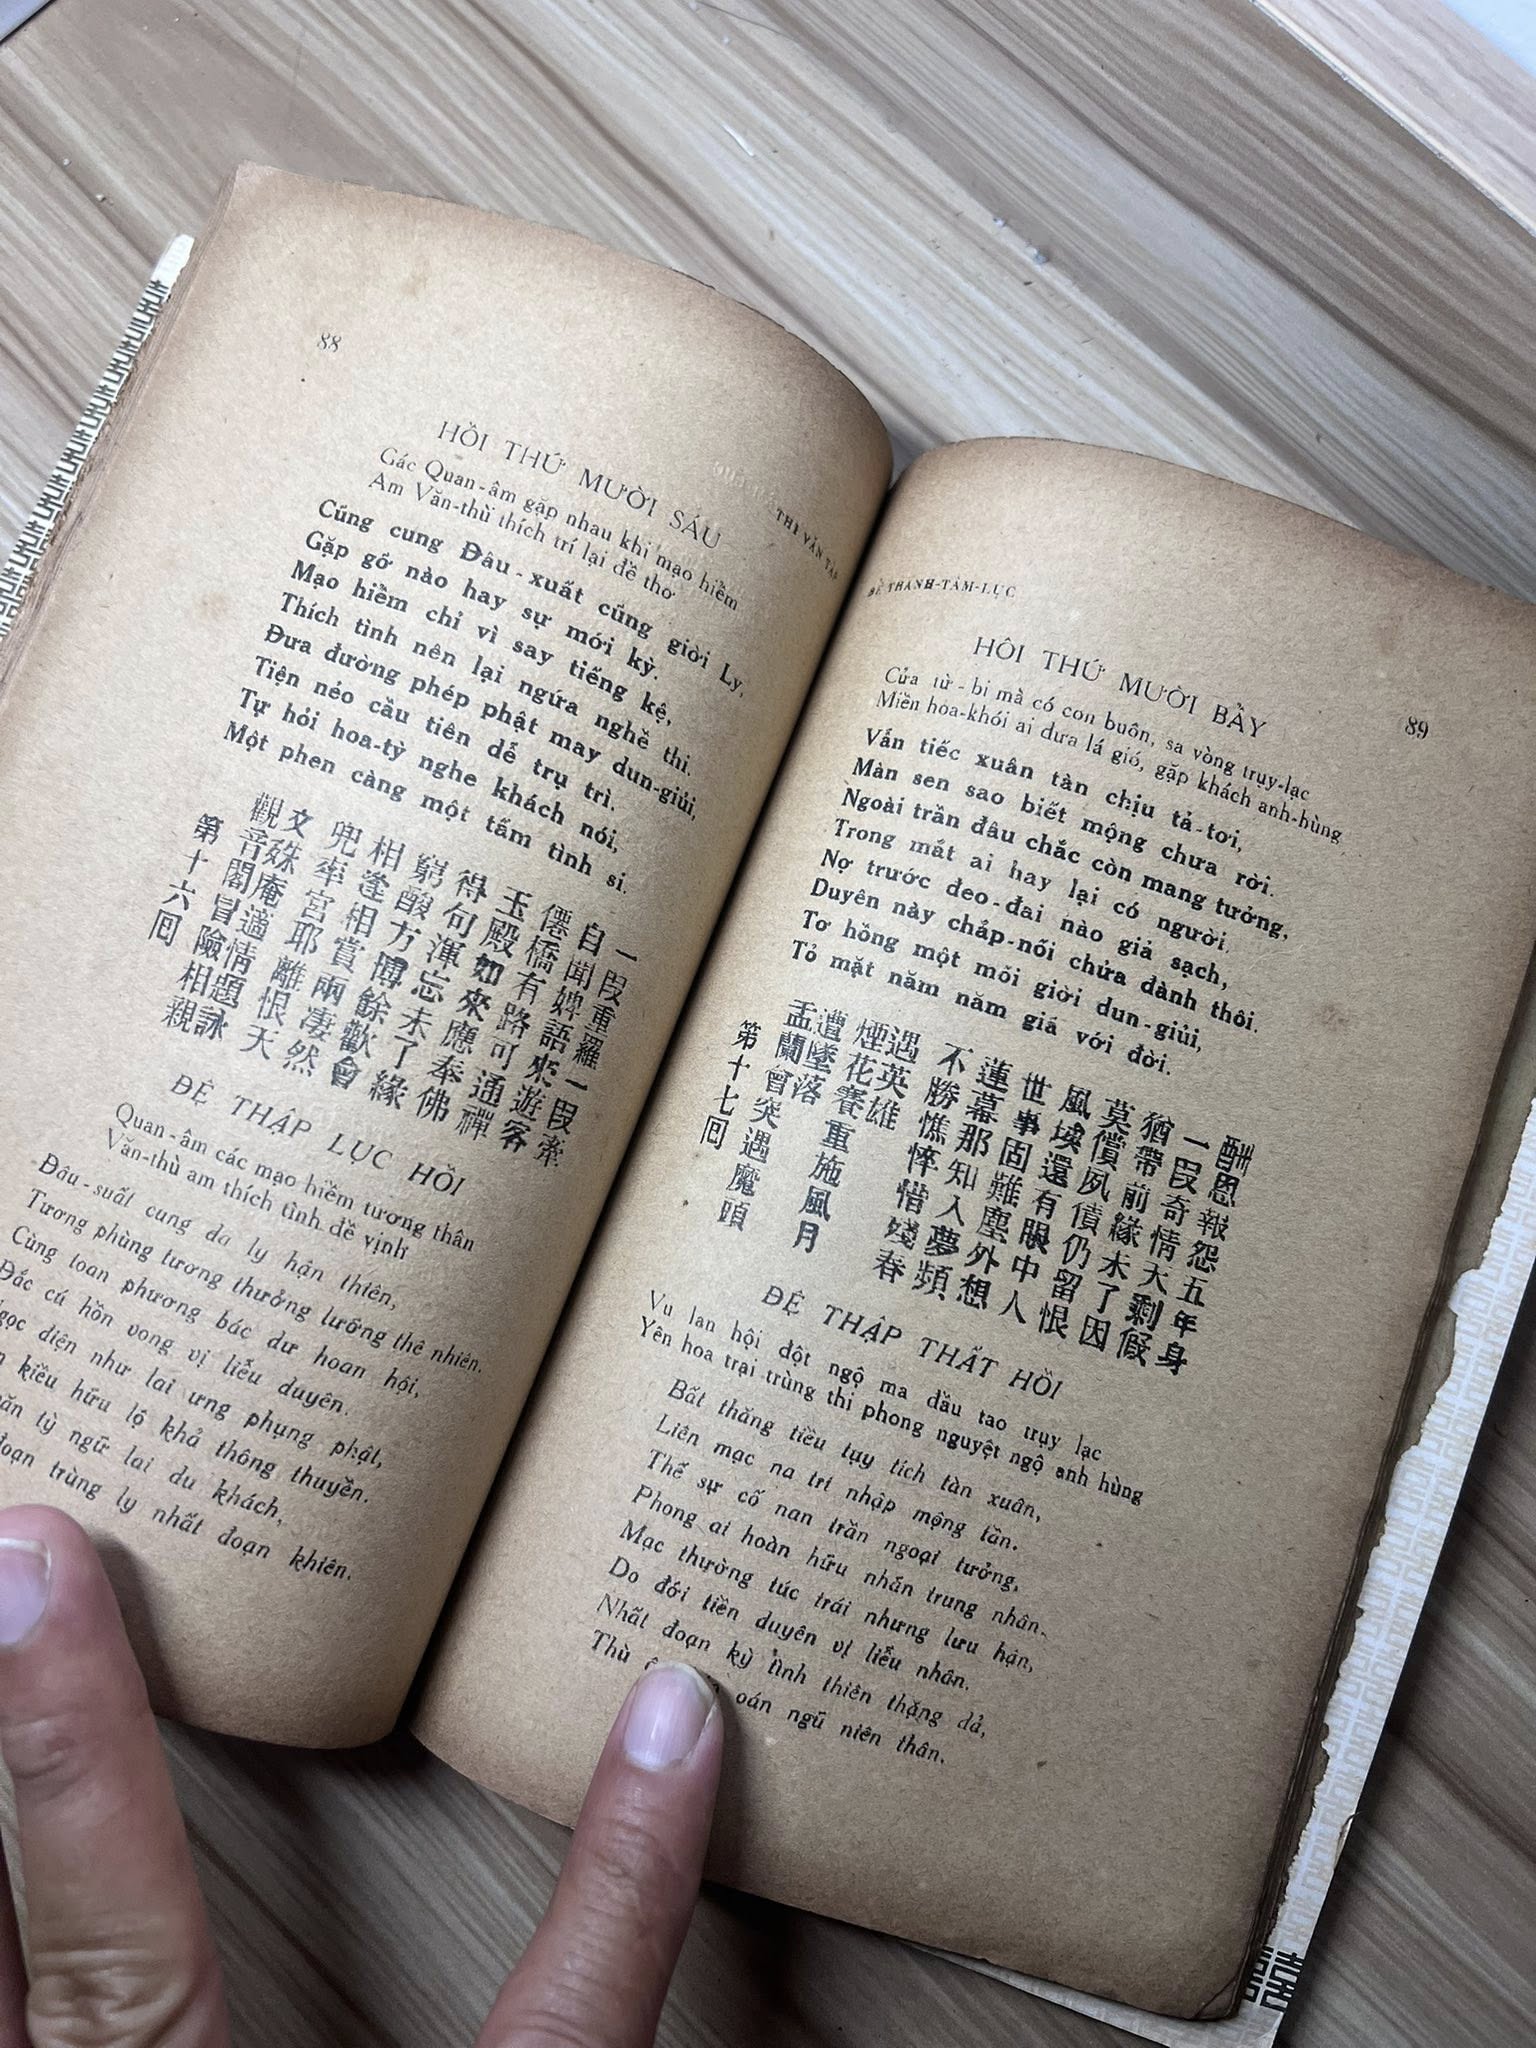 88
QUỐC THI VĂN TẬP
HỒI THỨ MƯỜI SÁU
Gác Quan-âm gặp nhau khi mạo hiểm
Am Văn-thù thích trí lại đề thơ
Cũng cung Đâu-xuất cũng giời Ly,
Gặp gỡ nào hay sự mới kỳ.
Mạo hiểm chỉ vì say tiếng kệ,
Thích tình nên lại ngứa nghề thi.
Đưa đường phép phật may dun-giủi,
Tiện nẻo cầu tiên dễ trụ trì.
Tự hỏi hoa-tỳ nghe khách nói,
Một phen càng một tấm tình si.
第十六囘
觀音閣冒險相親
文殊庵適情題詠
兜率宮耶離恨天
相逢相賞兩凄然
窮酸方博餘歡會
得句渾忘未了緣
玉殿如來應奉佛
僊橋有路可通禪
自聞婢語來遊客
一段重羅一段牽
ĐỆ THẬP LỤC HỒI
Quan-âm các mạo hiểm tương thân
Văn-thù am thích tình đề vịnh
Đâu-suất cung da ly hận thiên,
Tương phùng tương thưởng lưỡng thê nhiên.
Cùng toan phương bác dư hoan hội,
Đắc cú hồn vong vị liễu duyên.
Ngọc diện như lai ưng phụng phật,
kiều hữu lộ khả thông thuyền.
tỳ ngữ lai du khách,
đoạn trùng ly nhất đoạn khiên.
ĐỀ THANH-TÂM-LỤC
89
HỒI THỨ MƯỜI BẢY
Cửa từ-bi mà có con buôn, sa vòng trụy-lạc
Miền hoa-khói ai đưa lá gió, gặp khách anh-hùng
Vẩn tiếc xuân tàn chịu tả-tơi,
Màn sen sao biết mộng chưa rời.
Ngoài trần đâu chắc còn mang tưởng,
Trong mắt ai hay lại có người.
Nợ trước đeo-đai nào giả sạch,
Duyên này chắp-nối chửa đành thôi.
Tơ hồng một mối giời dun-giủi,
Tỏ mặt năm năm giá với đời.
第十七囘
盂蘭會突遇魔頭
遭墜落
煙花賽重施風月
遇英雄
不勝憔悴惜殘春
蓮幕那知入夢頻
世事固難塵外想
風埃還有眼中人
莫償夙債仍留恨
猶帶前緣未了因
一段奇情大剩假
酬恩報怨五年身
ĐỆ THẬP THẤT HỒI
Vu lan hội đột ngộ ma đầu tao trụy lạc
Yên hoa trại trùng thi phong nguyệt ngộ anh hùng
Bất thăng tiều tụy tích tàn xuân,
Liên mạc na tri nhập mộng tần.
Thế sự cố nan trần ngoại tưởng,
Phong ai hoàn hữu nhãn trung nhân.
Mạc thường túc trái nhưng lưu hận,
Do đới tiền duyên vị liễu nhân.
Nhất đoạn kỳ tình thiên thặng dả,
Thù oán ngũ niên thân.